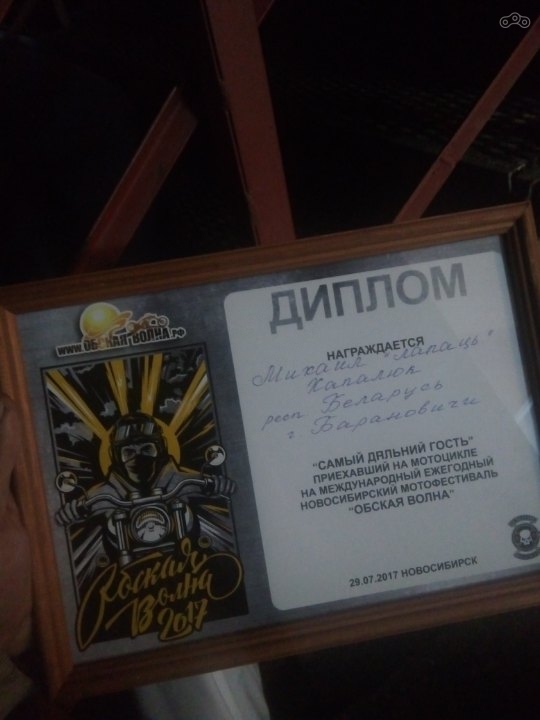 www.ОБСКАЯ ВОЛНА.рф
Обская
Волна
2017
ДИПЛОМ
НАГРАЖДАЕТСЯ
Михаил "Лапаць"
Хапалюк
респ Беларусь
г. Барановичи
"САМЫЙ ДАЛЬНИЙ ГОСТЬ"
ПРИЕХАВШИЙ НА МОТОЦИКЛЕ
НА МЕЖДУНАРОДНЫЙ ЕЖЕГОДНЫЙ
НОВОСИБИРСКИЙ МОТОФЕСТИВАЛЬ
"ОБСКАЯ ВОЛНА"
29.07.2017 НОВОСИБИРСК